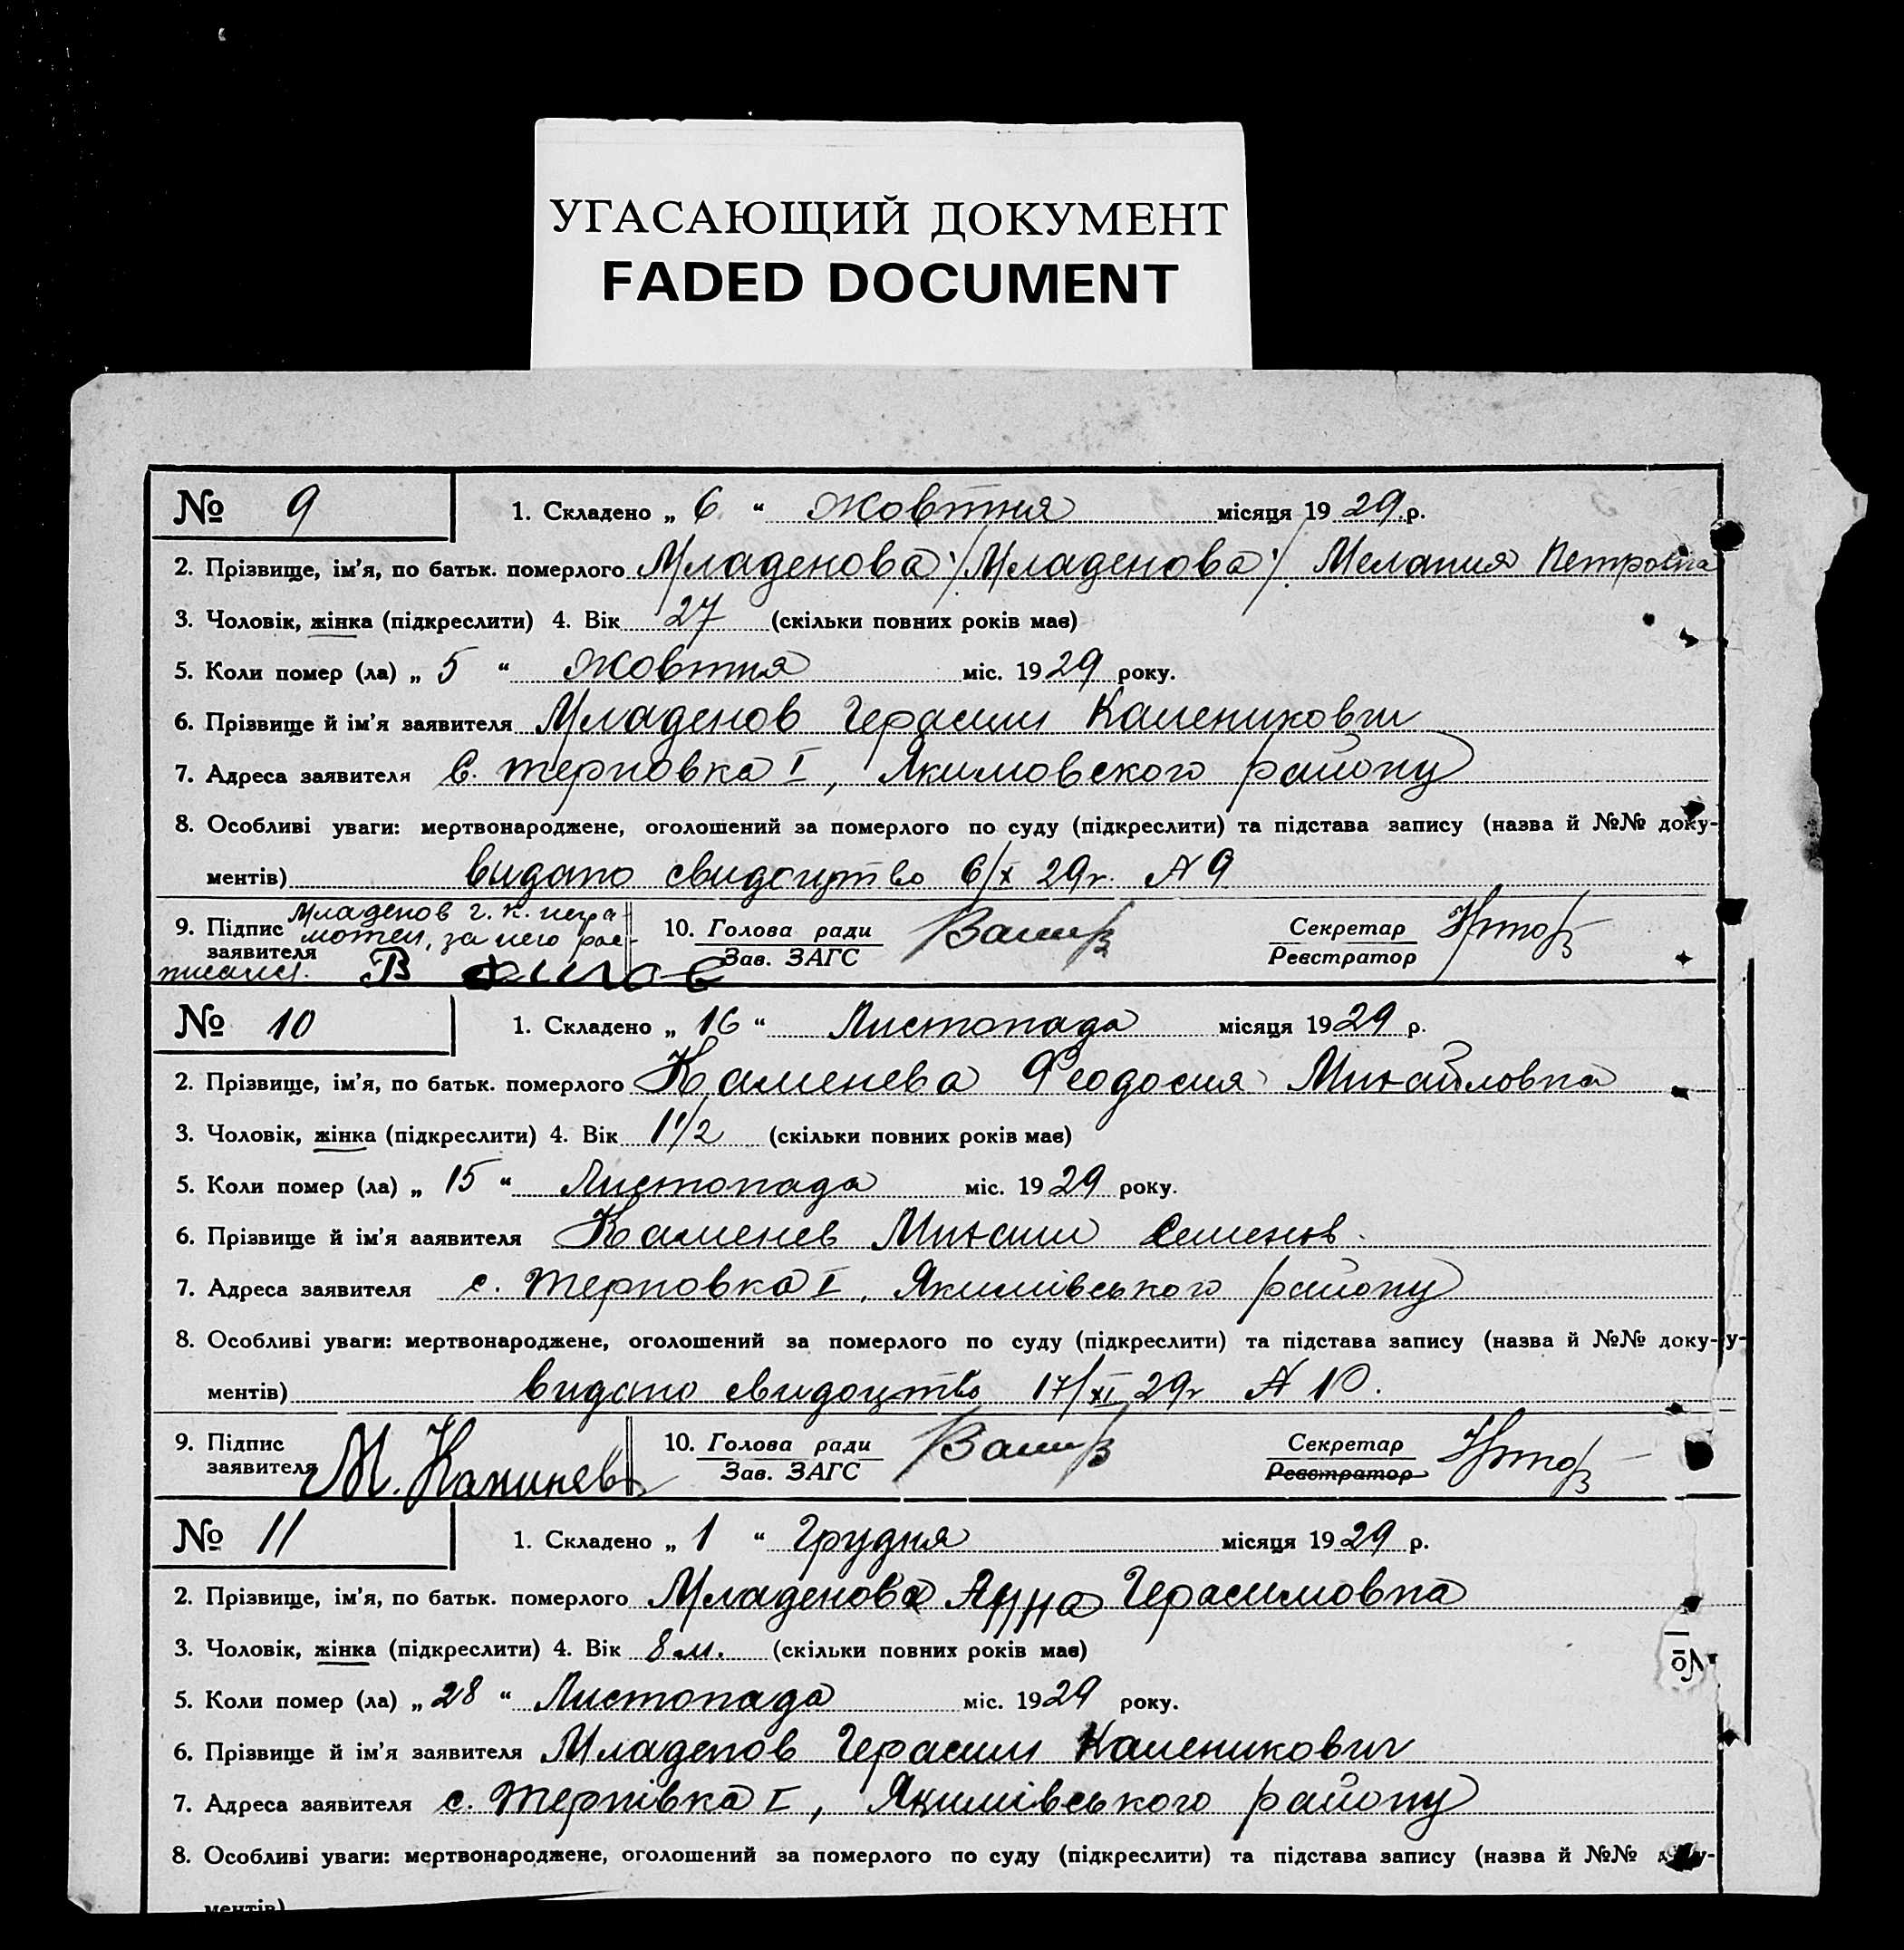 УГАСАЮЩИЙ ДОКУМЕНТ
FADED DOCUMENT
№ 9 1. Складено „ 6 “ Жовтня місяця 1929 р.
2. Прізвище, ім’я, по батьк. померлого Младенова /Младенова/ Мелания Петровна
3. Чоловік, жінка (підкреслити) 4. Вік 27 (скільки повних років має)
5. Коли помер (ла) „ 5 “ Жовтня міс. 1929 року.
6. Прізвище й ім’я заявителя Младенов Герасим Каленикович
7. Адреса заявителя С. Терновка I, Якимовского району
8. Особливі уваги: мертвонароджене, оголошений за померлого по суду (підкреслити) та підстава запису (назва й №№ доку-
ментів) видано свидоцтво 6/X 29г. № 9
9. Підпис заявителя Младенов Г. К. негра-
мотен, за него рос-
писался. В 10. Голова ради
Зав. ЗАГС Секретар
Реєстратор
№ 10 1. Складено „ 16 “ Листопада місяця 1929 р.
2. Прізвище, ім’я, по батьк. померлого Каменева Феодосия Михайловна
3. Чоловік, жінка (підкреслити) 4. Вік 1 1/2 (скільки повних років має)
5. Коли помер (ла) „ 15 “ Листопада міс. 1929 року.
6. Прізвище й ім’я ааявителя Каменев Михаил Семенов.
7. Адреса заявителя с. Терновка I, Якимівського району
8. Особливі уваги: мертвонароджене, оголошений за померлого по суду (підкреслити) та підстава запису (назва й №№ доку-у-
ментів) видано свидоцтво 17/XI 29г № 10.
9. Підпис заявителя М. Каминев 10. Голова ради
Зав. ЗАГС Секретар
Реєстратор
№ 11 1. Складено „ 1 “ Грудня місяця 1929 р.
2. Прізвище, ім’я, по батьк. померлого Младенова Анна Герасимовна
3. Чоловік, жінка (підкреслити) 4. Вік 8 м. (скільки повних років має)
5. Коли помер (ла) „ 28 “ Листопада міс. 1929 року.
6. Прізвище й ім’я заявителя Младенов Герасим Каленикович
7. Адреса заявителя с. Тернівка I, Якимівського району
8. Особливі уваги: мертвонароджене, оголошений за померлого по суду (підкреслити) та підстава запису (назва й №№ доку-
ментів)
№